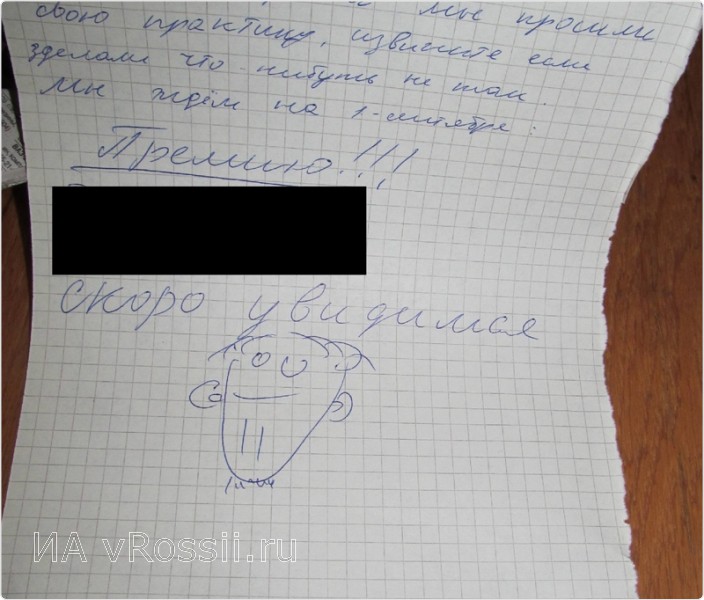 мы прошли
свою практику, извините если
зделали что-нибуть не так.
Мы ждём на 1-сентября:
Премию!!!
скоро увидимся
ИА vRossii.ru